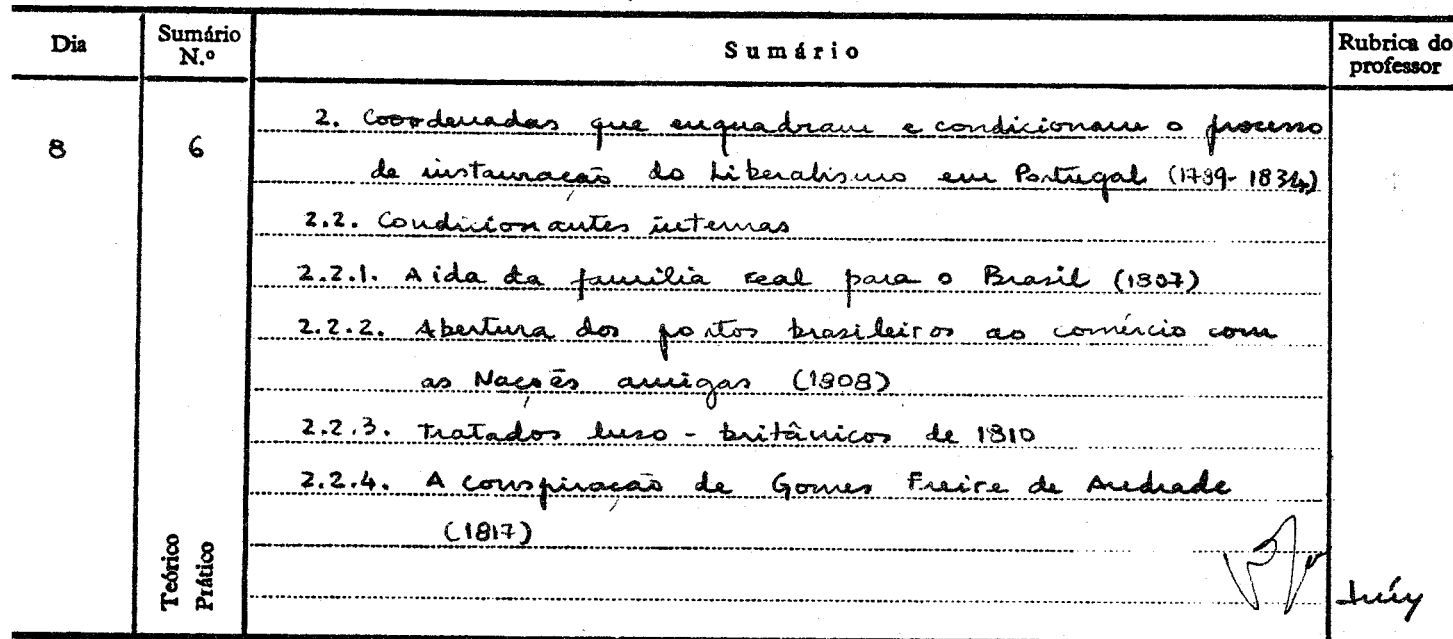 Dia Sumário N.º Sumário Rubrica do professor
8 6 2. Coordenadas que enquadram e condicionam o processo
de instauração do Liberalismo em Portugal (1789-1834)
2.2. Condicionantes internas
2.2.1. A ida da família real para o Brasil (1807)
2.2.2. Abertura dos portos brasileiros ao comércio com
as Nações amigas (1808)
2.2.3. Tratados luso-britânicos de 1810
2.2.4. A conspiração de Gomes Freire de Andrade
(1817)
Teórico
Prático